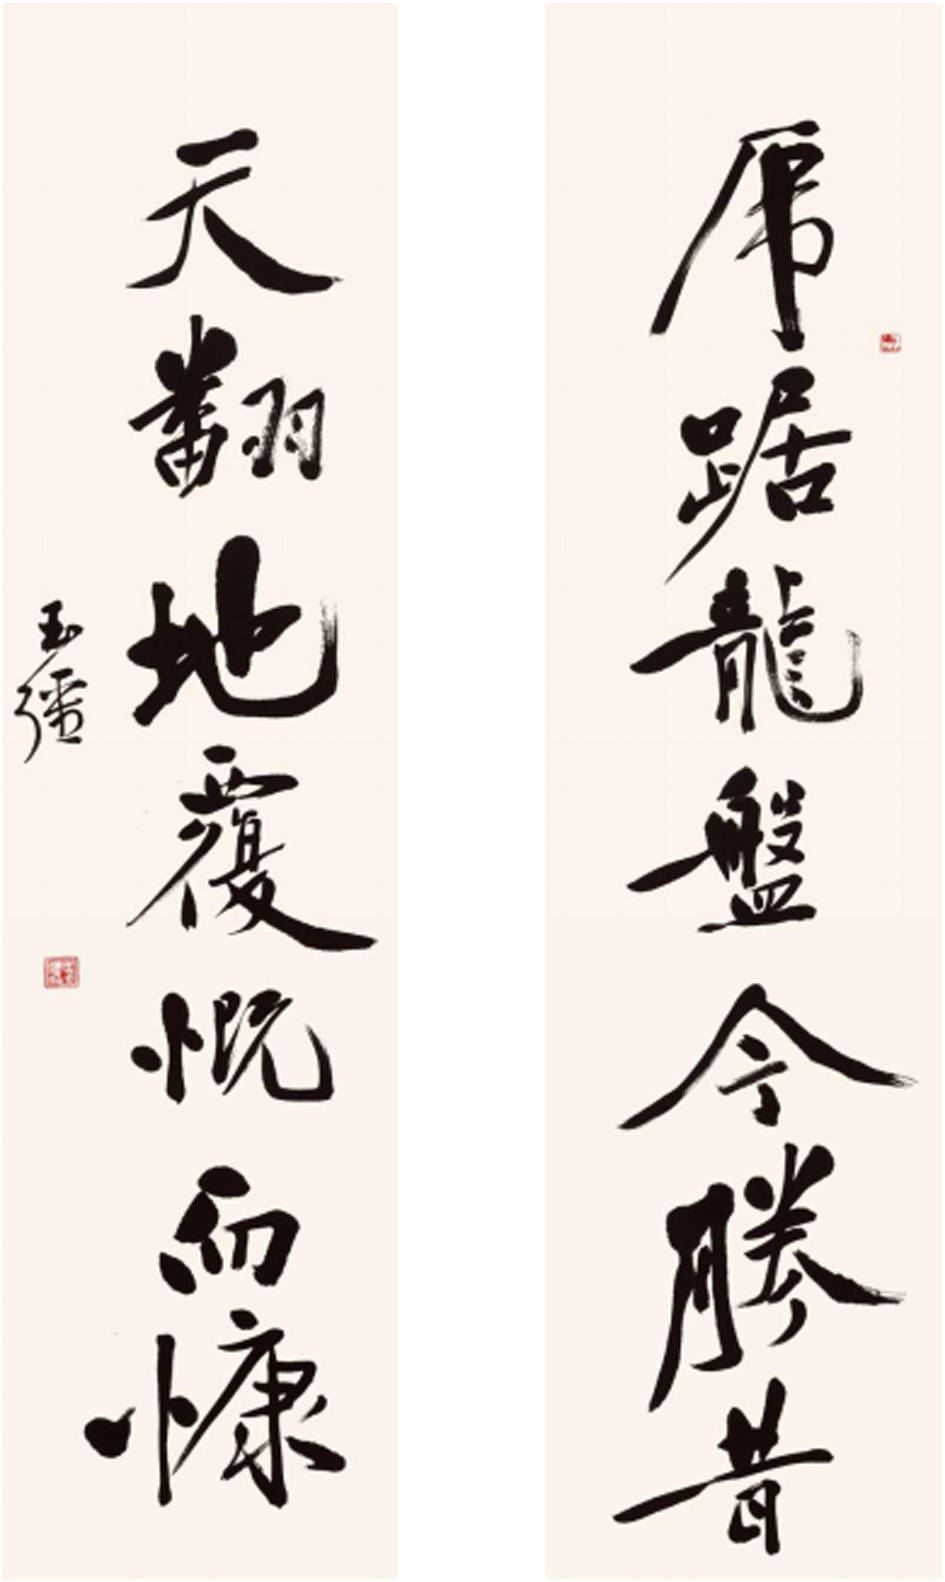 虎踞龍盤今勝昔
天翻地覆慨而慷
玉疆